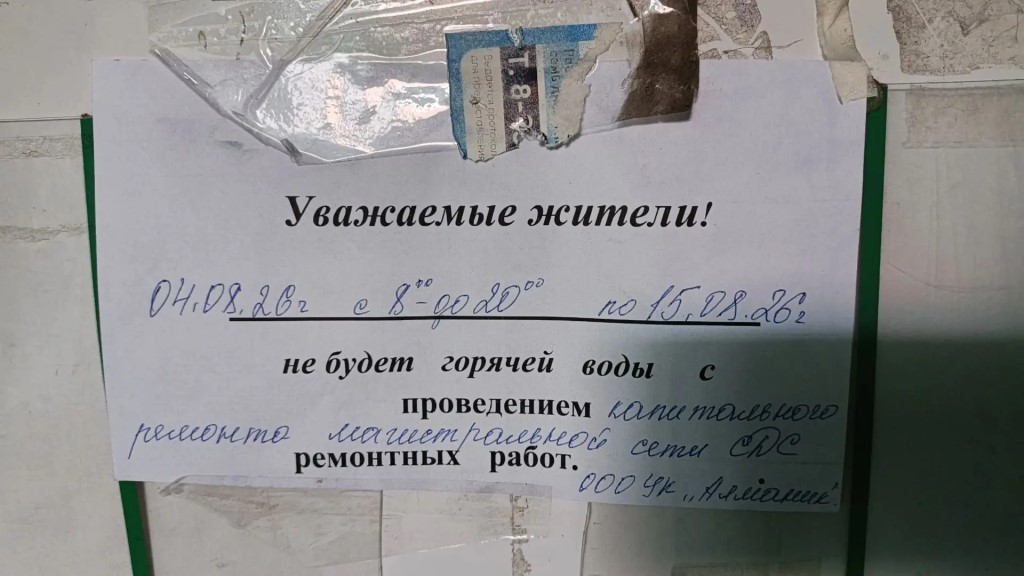 Т.8-
Уважаемые жители!
04.08.26г с 8⁰⁰- до 20⁰⁰ по 15.08.26г
не будет горячей воды с
проведением капитального
ремонта магистральной сети
ремонтных работ.
ООО УК